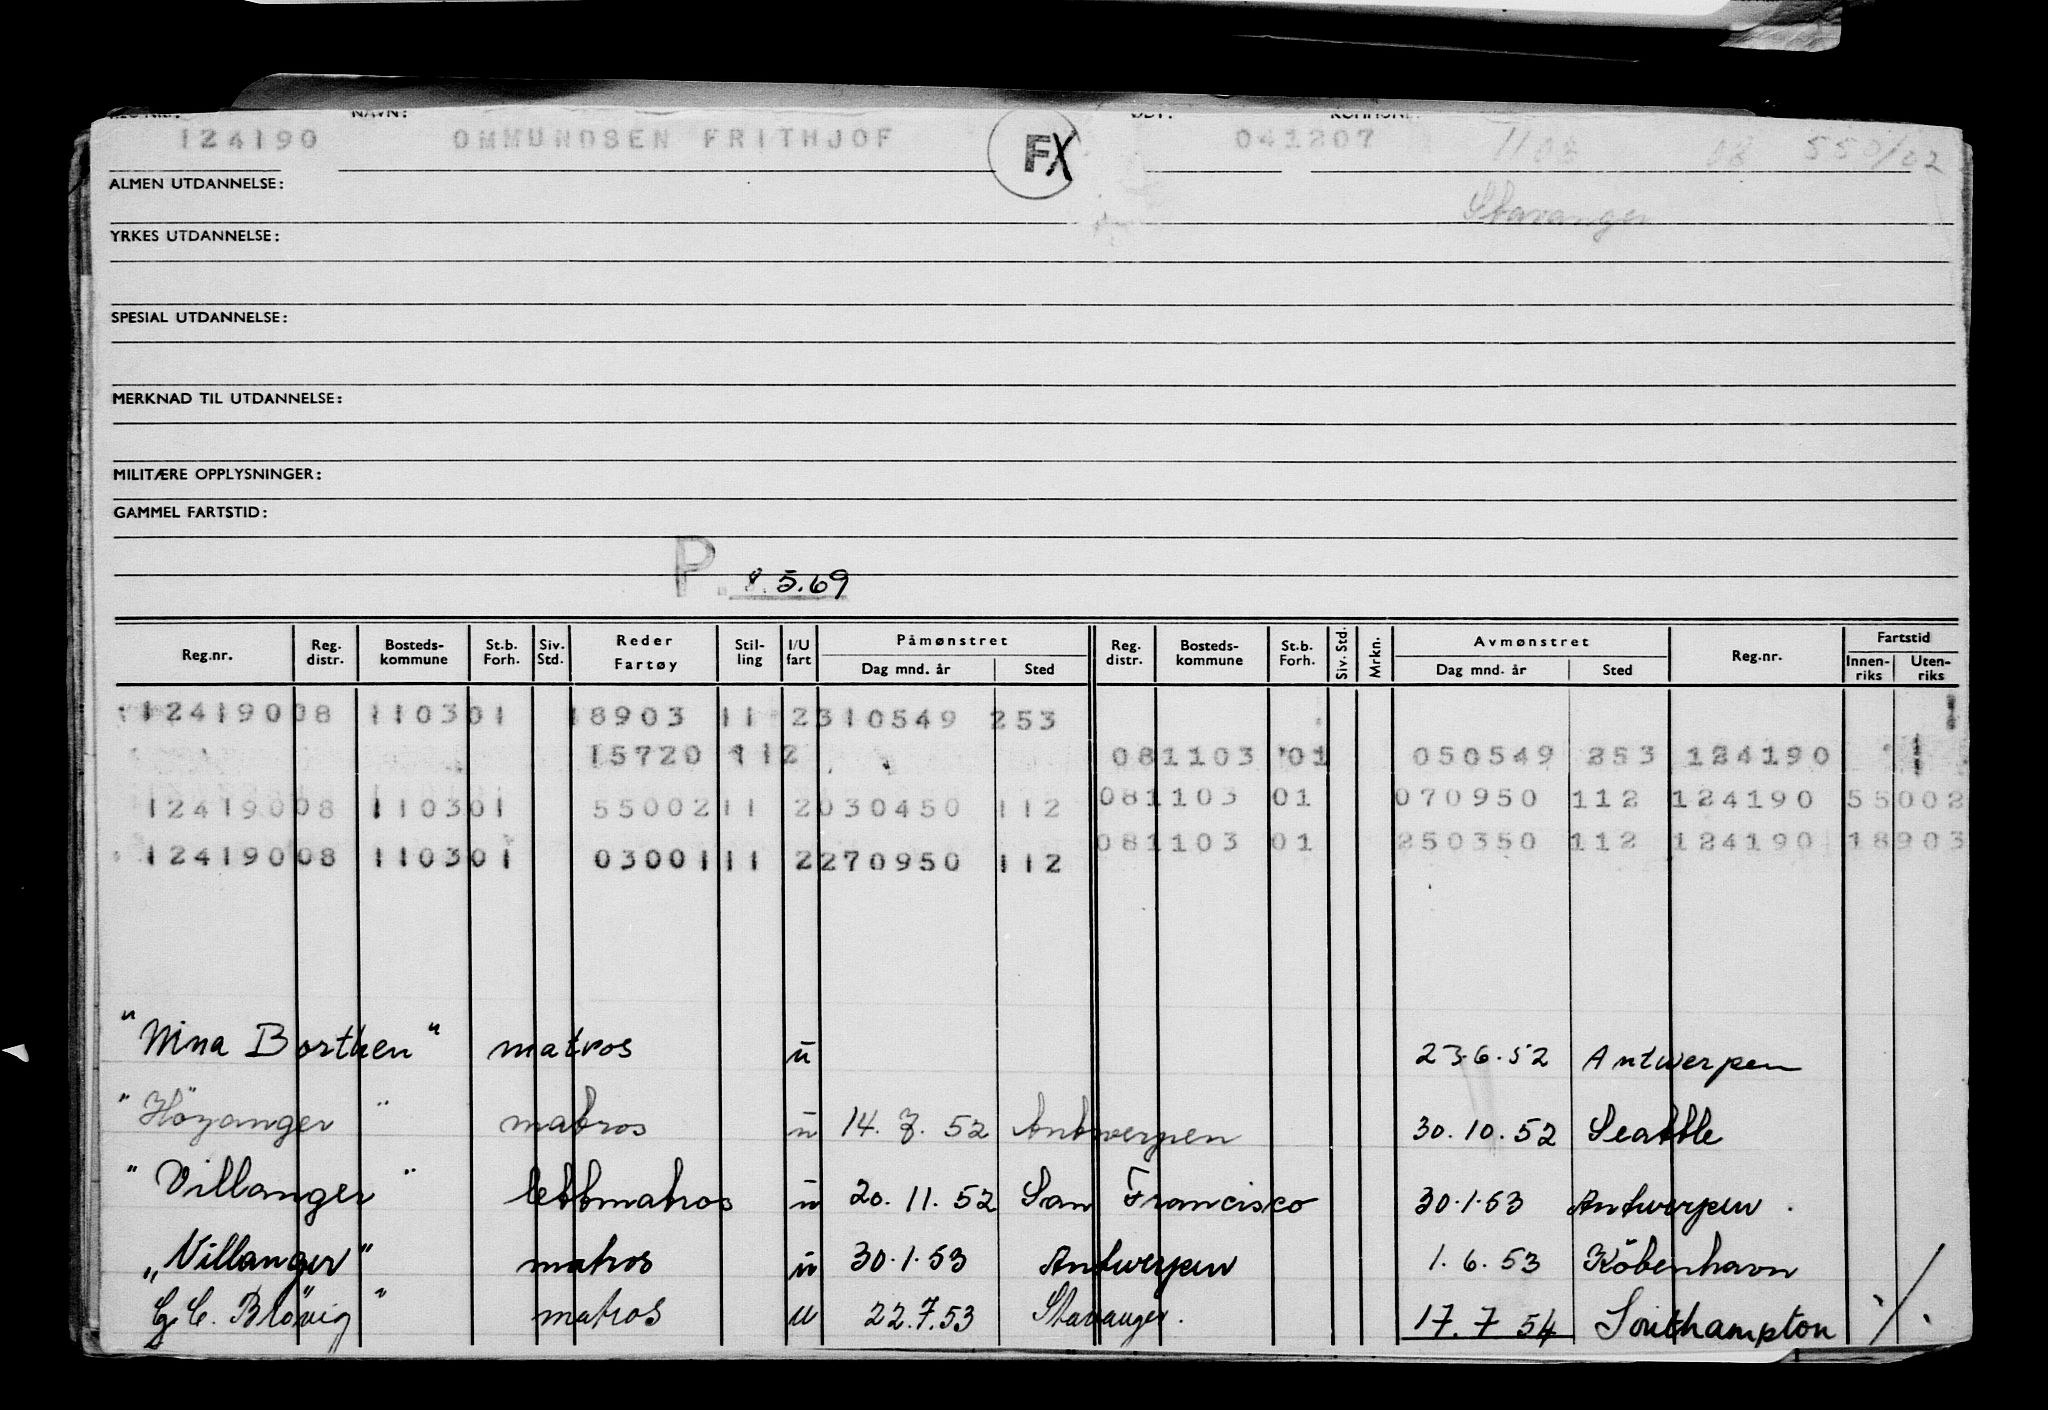 NAVN:
124190 OMMUNDSEN FRITHJOF FX 041207 1103 08 550/02
ALMEN UTDANNELSE:
Stavanger
YRKES UTDANNELSE:
SPESIAL UTDANNELSE:
MERKNAD TIL UTDANNELSE:
MILITÆRE OPPLYSNINGER:
GAMMEL FARTSTID:
P. 8.5.69
Reg.nr. Reg. distr. Bosteds-kommune St.b. Forh. Siv. Std. Reder Fartøy Stil-ling I/U fart Påmønstret Dag mnd. år Sted Reg. distr. Bosteds-kommune St.b. Forh. Siv. Std. Mrkn. Avmønstret Dag mnd. år Sted Reg.nr. Fartstid Innen-riks Uten-riks
124190 08 1103 01 18903 11 2 310549 253
15720 11 2 08 1103 01 050549 253 124190
124190 08 1103 01 55002 11 2 030450 112 08 1103 01 070950 112 124190 55002
124190 08 1103 01 03001 11 2 270950 112 08 1103 01 250350 112 124190 18903
"Nina Borthen" matros u 23.6.52 Antwerpen
"Höyanger" matros u 14. 7. 52 Antwerpen 30. 10. 52 Seattle
"Villanger" lettmatros u 20. 11. 52 San Francisco 30.1.53 Antwerpen.
„Villanger" matros u 30.1.53 Antwerpen 1. 6. 53 Köbenhavn
G. C. Brövig" matros u 22.7.53 Stavanger. 17. 7 54 Southampton ·/.